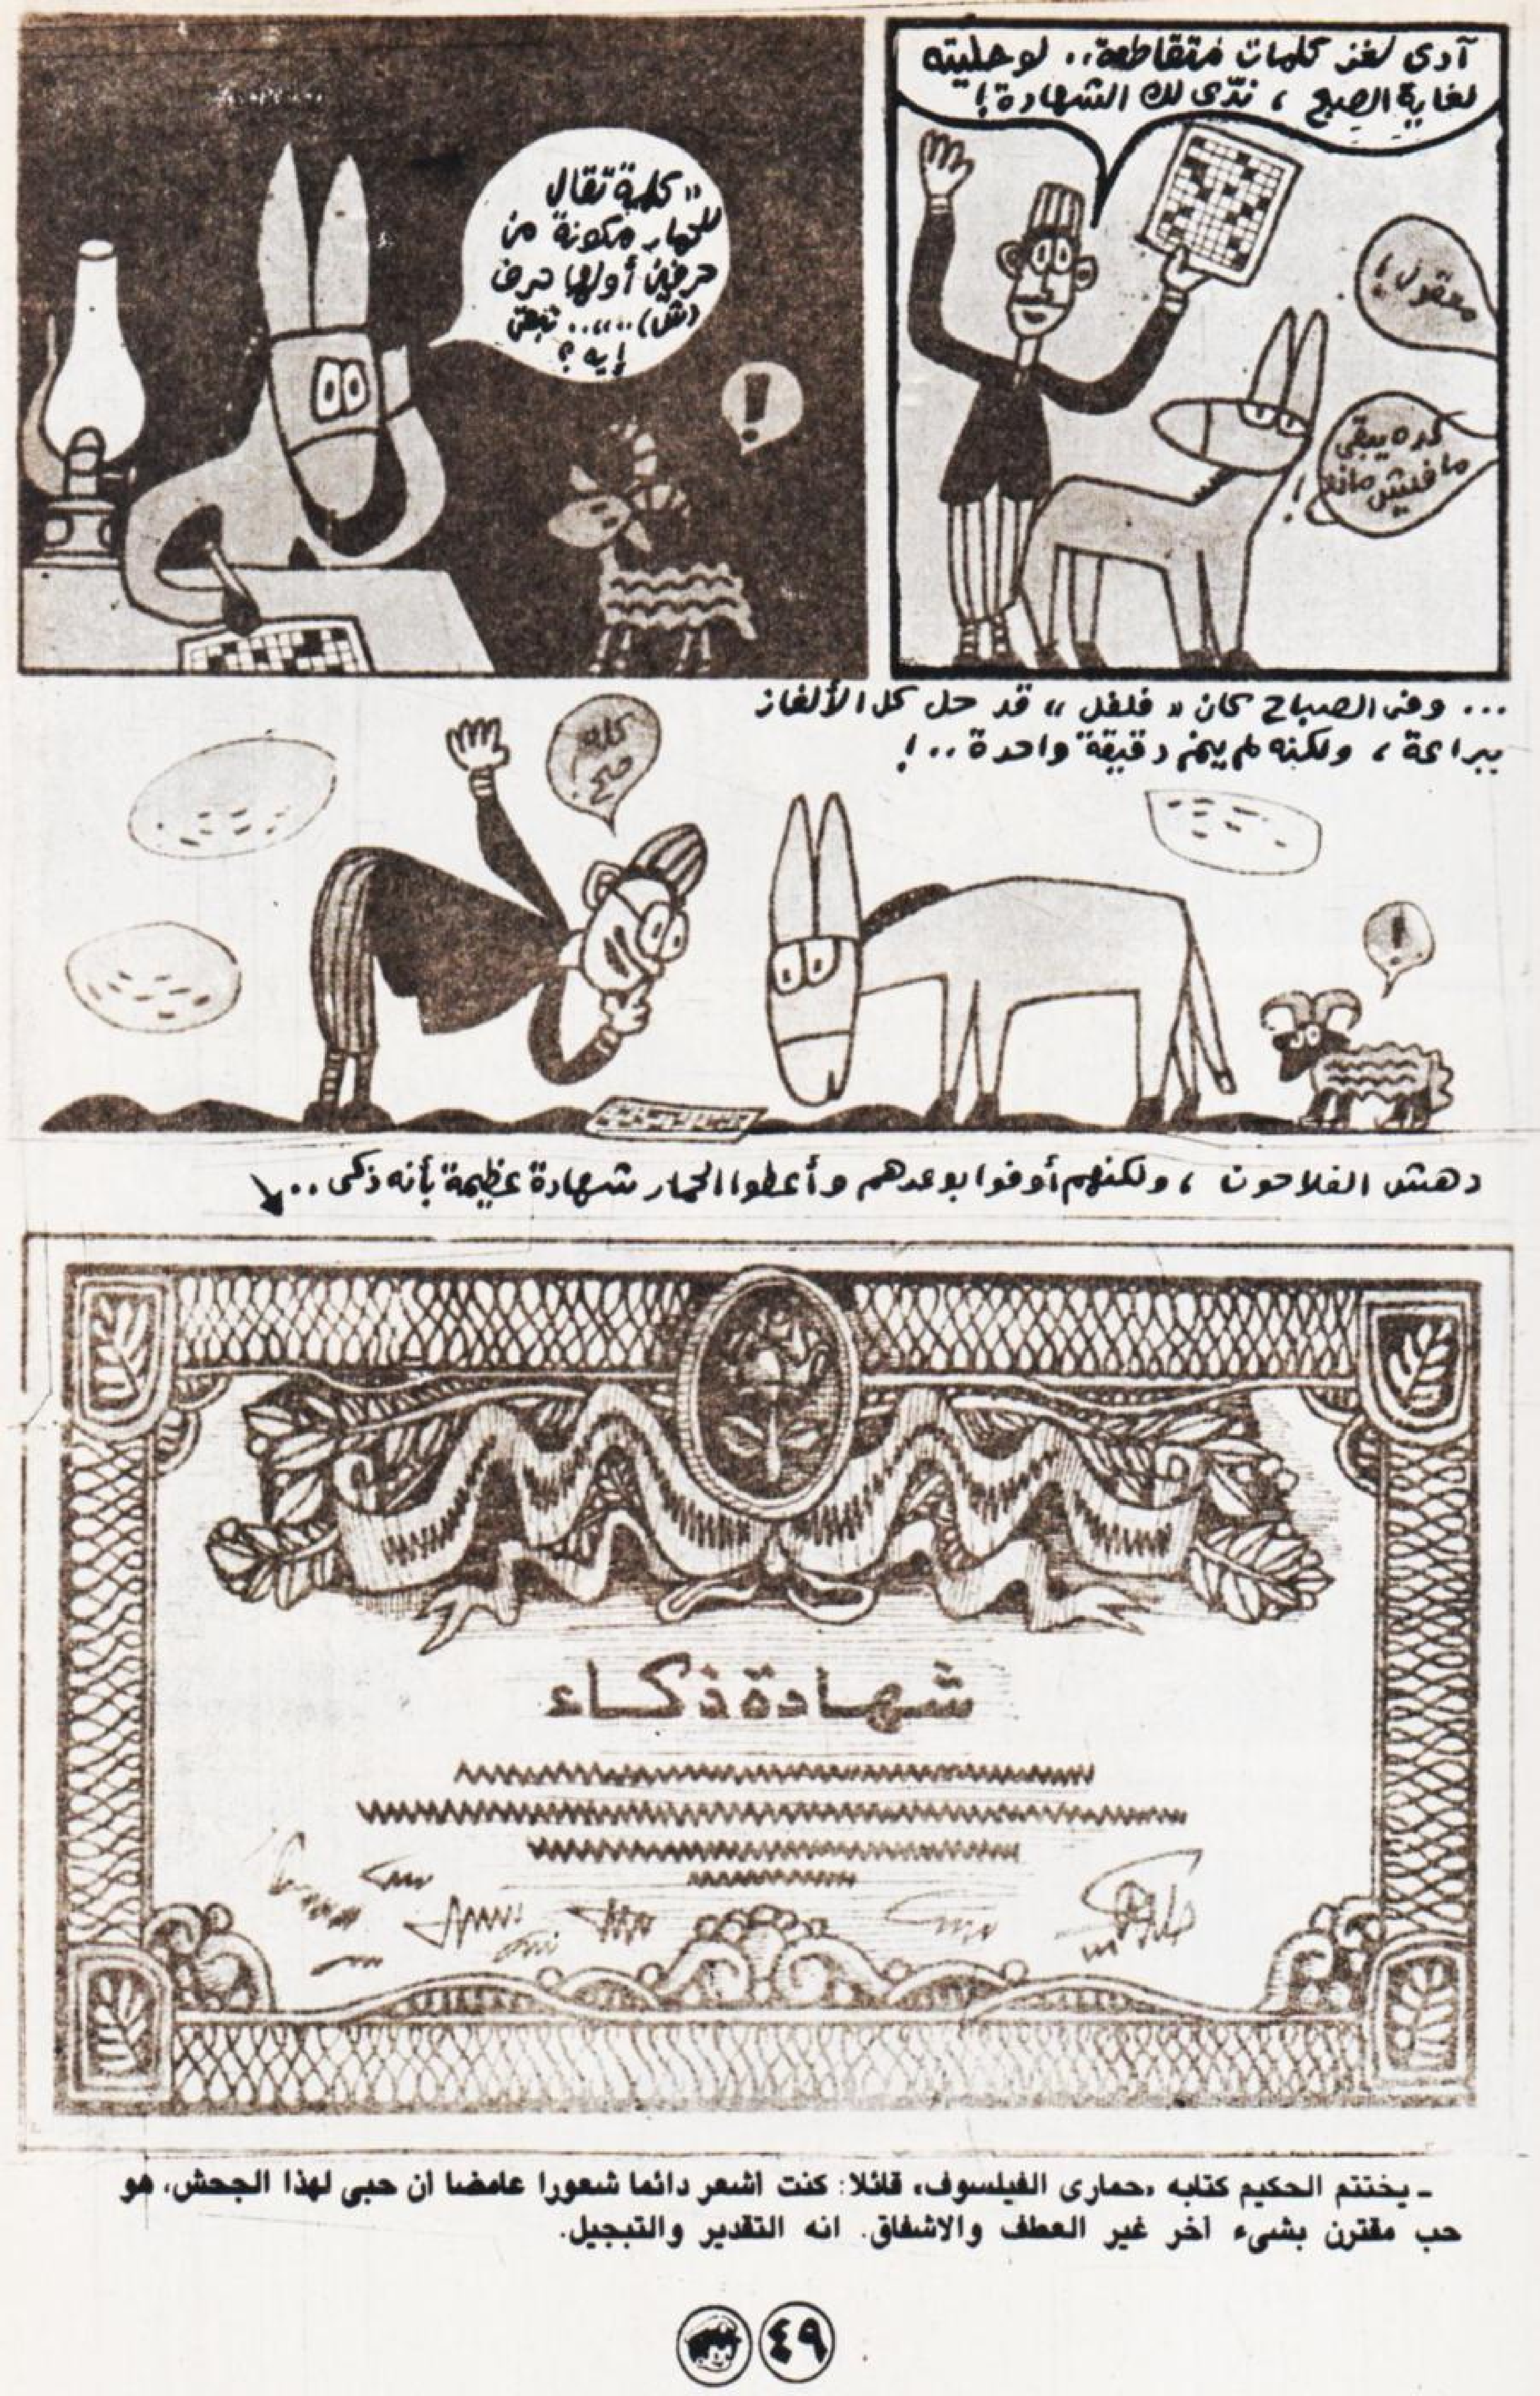 آدى لغز كلمات متقاطعة.. لو حليته
لغاية الصبح ، ندّى لك الشهادة !
معقول !
كده يبقى
مافيش مانع
!
"كلمة تقال
للحمار مكونة من
حرفين أولها حرف
(ش) ..... تبقى
إيه ؟
!
... وفى الصباح كان « فلفل » قد حل كل الألغاز
ببراعة ، ولكنه لم ينم دقيقة واحدة ..!
كله
صح
!
دهش الفلاحون ، ولكنهم أوفوا بوعدهم وأعطوا الحمار شهادة عظيمة بأنه ذكى ..
شهادة ذكاء
ـ يختتم الحكيم كتابه «حمارى الفيلسوف» قائلا: كنت اشعر دائما شعورا غامضا ان حبى لهذا الجحش، هو
حب مقترن بشىء آخر غير العطف والاشفاق. انه التقدير والتبجيل.
٤٩